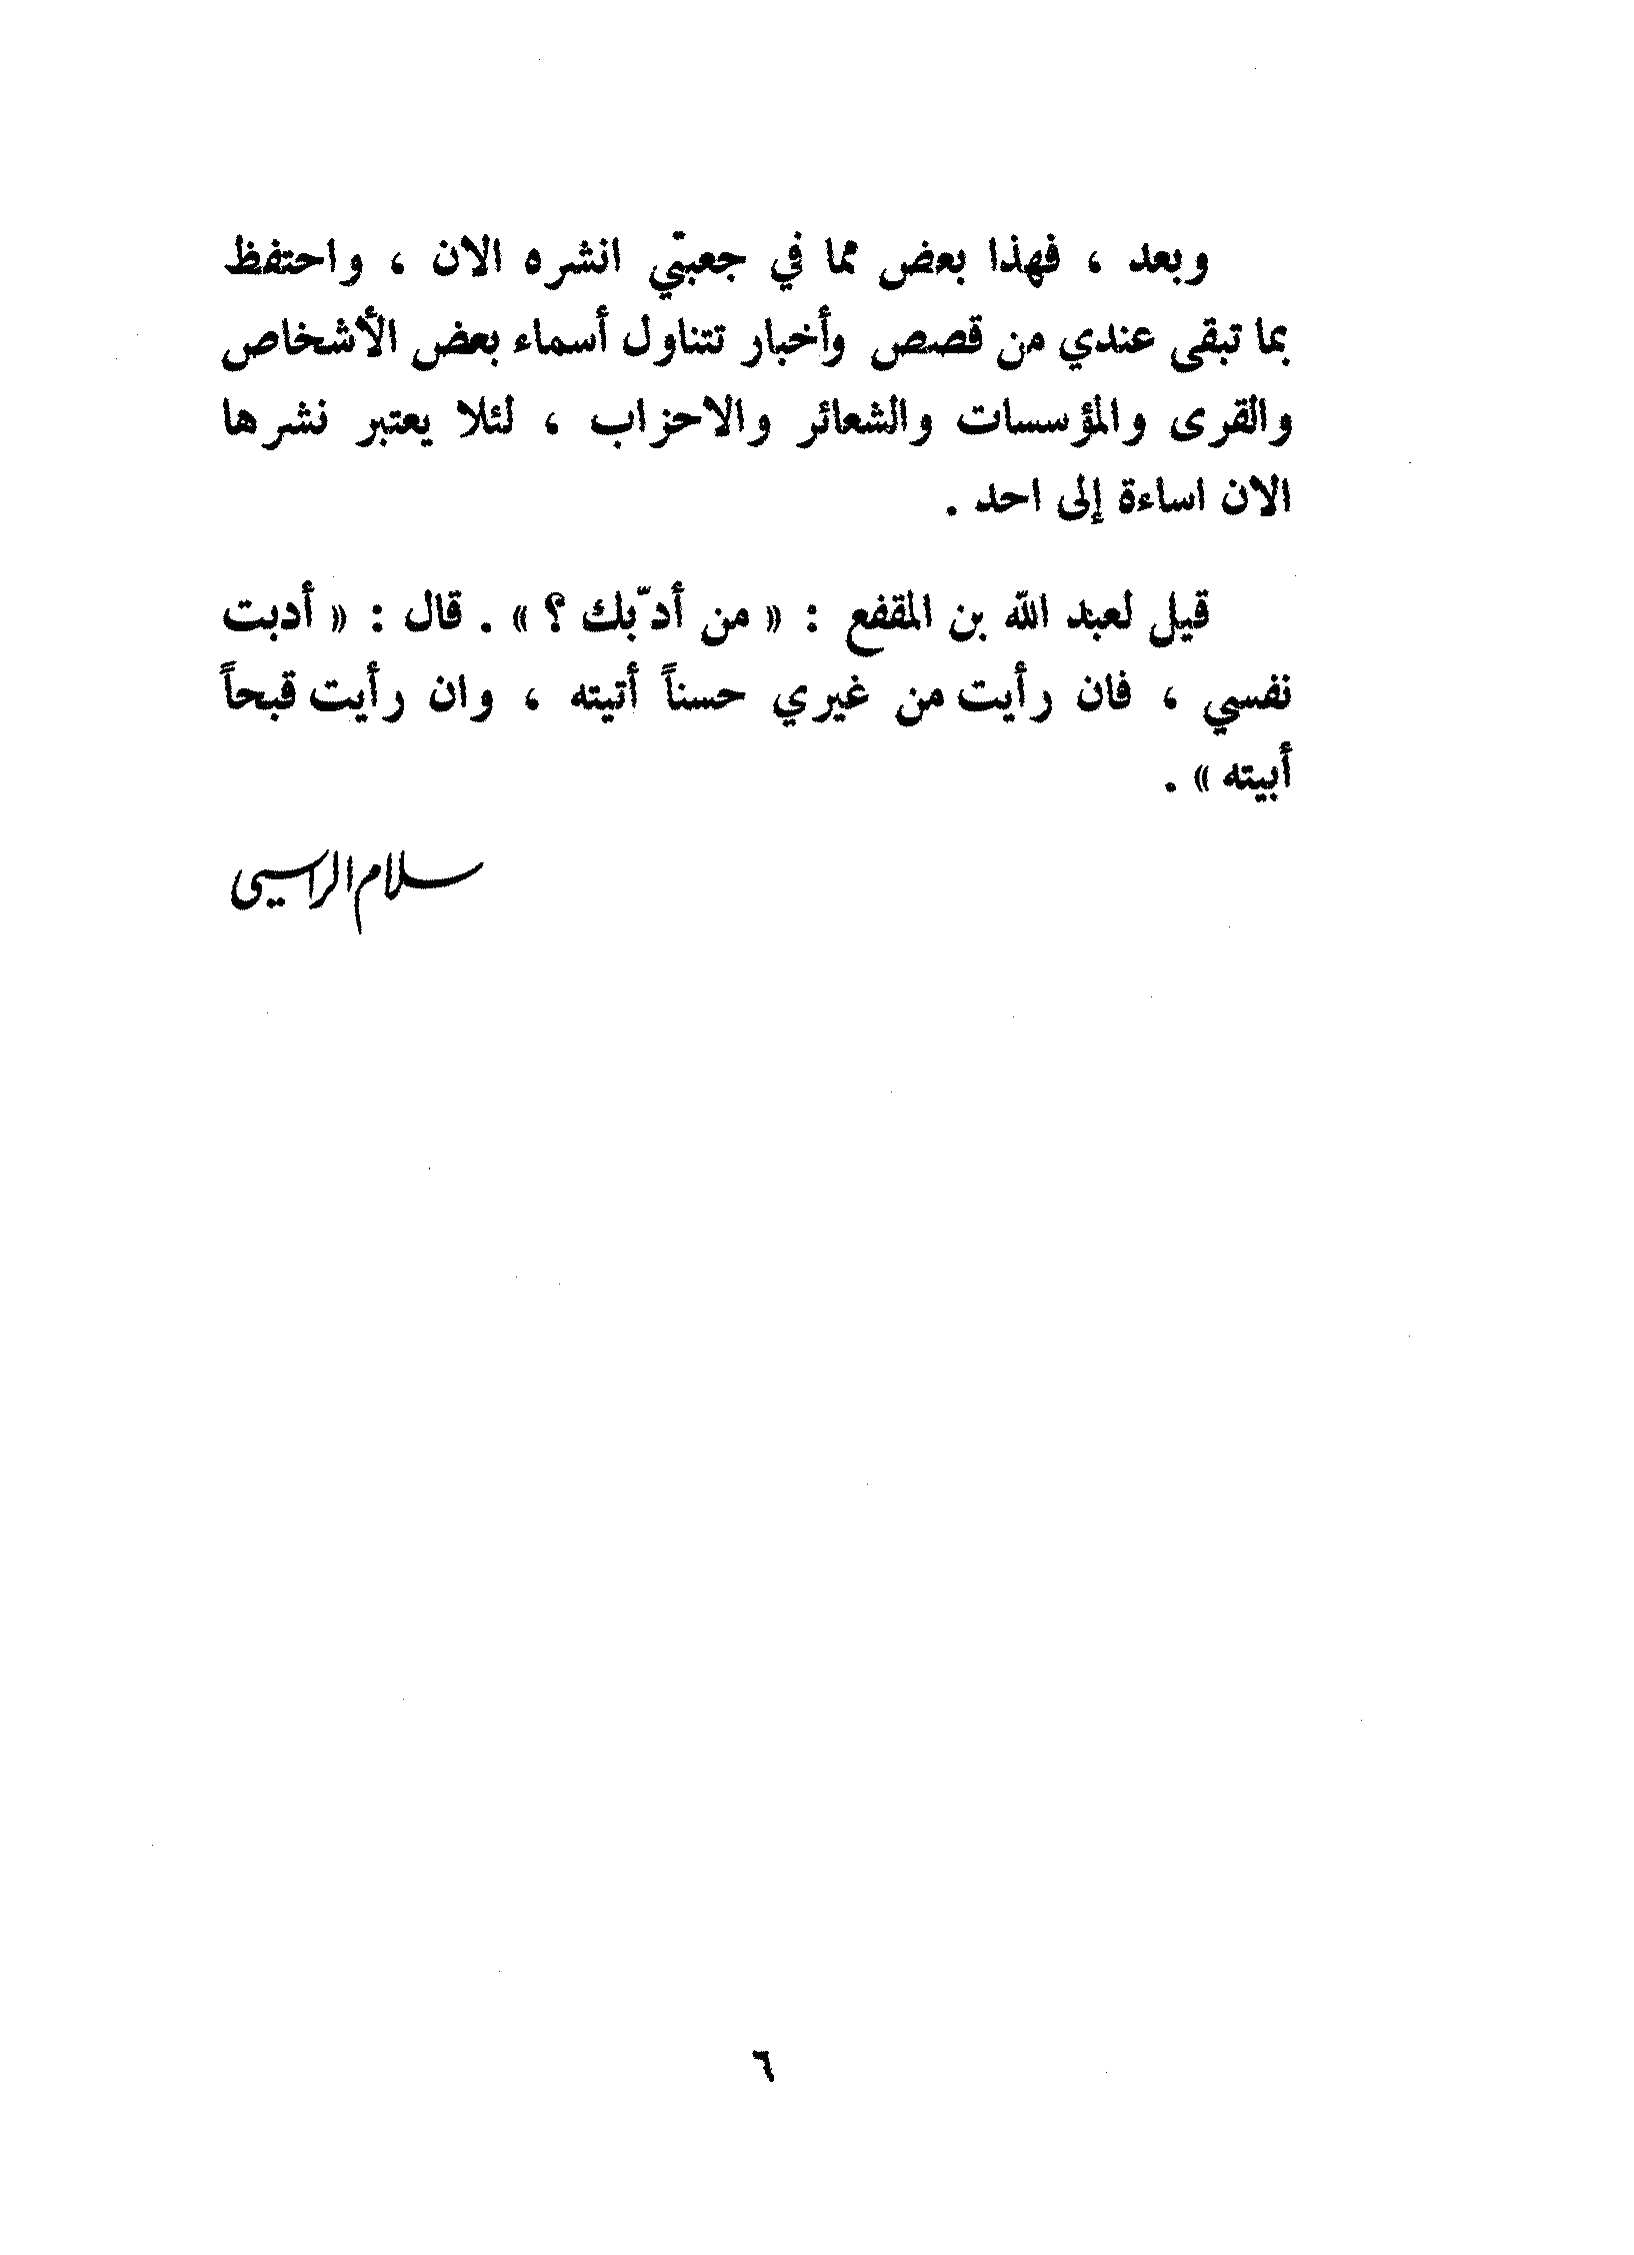 وبعد ، فهذا بعض مما في جعبتي انشره الان ، واحتفظ
بما تبقى عندي من قصص وأخبار تتناول أسماء بعض الأشخاص
والقرى والمؤسسات والشعائر والاحزاب ، لئلا يعتبر نشرها
الان اساءة إلى احد .
قيل لعبد الله بن المقفع : « من أدّبك ؟ » . قال : « أدبت
نفسي ، فان رأيت من غيري حسناً أتيته ، وان رأيت قبحاً
أبيته » .
سلام الراسي
٦